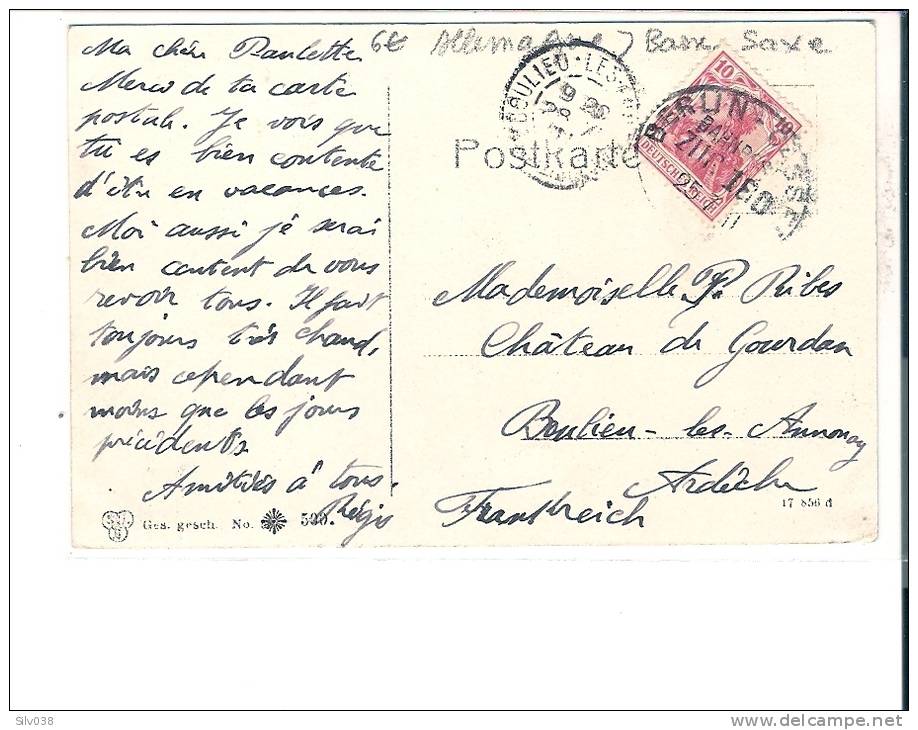 Ma chère Paulette
Merci de ta carte
postale. Je vois que
tu es bien contente
d'être en vacances.
Moi aussi je serai
bien content de vous
revoir tous. Il fait
toujours très chaud,
mais cependant
moins que les jours
précédents.
Amitiés à tous.
Régis
6€ Allemagne / Basse Saxe
BOULIEU-LES
9
26
BERLIN
BAHNPOST
ZUG 160
25.7.11
10
DEUTSCHES
Postkarte
Mademoiselle P. Ribes
Château de Gourdan
Boulieu-les-Annonay
Ardèche
Frankreich
Ges. gesch. No. 530.
17 856 d
Silv038
www.delcampe.net